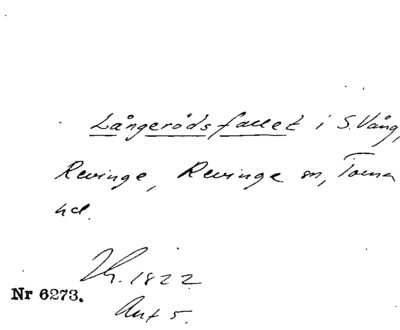 Långerödsfallet i S. Vång,
Revinge, Revinge sn, Torna
hd.
Lh. 1822
Nr 6273.
Ant 5.